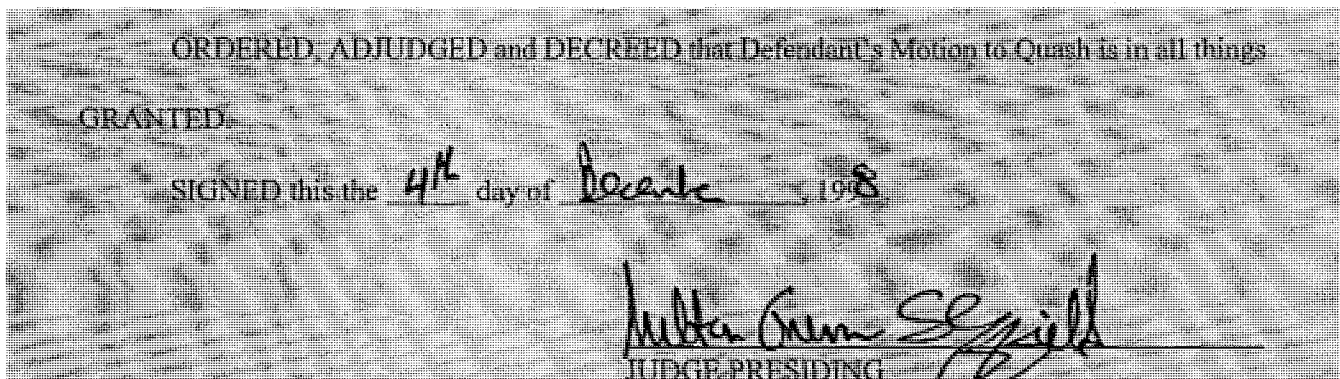 ORDERED, ADJUDGED and DECREED that Defendant's Motion to Quash is in all things
GRANTED.
SIGNED this the 4th day of December, 1998
JUDGE PRESIDING